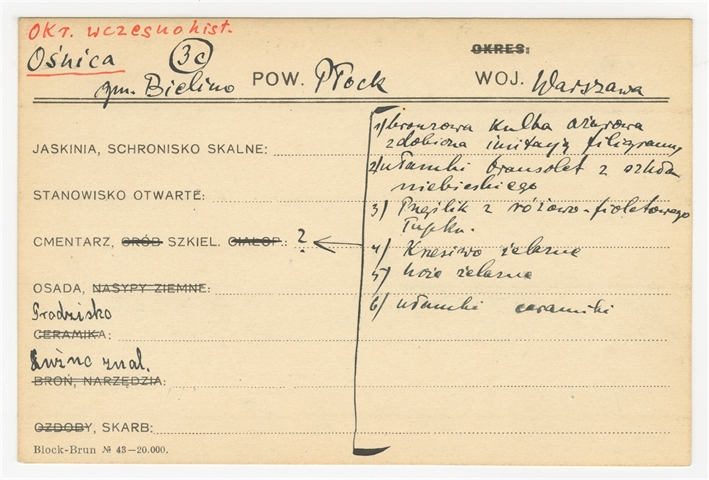 OKr. wczesnohist.
Ośnica 3c OKRES:
gm. Bielino POW. Płock WOJ. Warszawa
1) bronzowa kulka ażurowa
zdobiona imitacją filigranu
JASKINIA, SCHRONISKO SKALNE:
2) ułamki bransolet z szkła
niebieskiego
STANOWISKO OTWARTE:
3) Przęślik z różowo-fioletowego
łupku.
CMENTARZ, GRÓB SZKIEL. CIAŁOP.: ?
4) Krzesiwo żelazne
5) noże żelazne
OSADA, NASYPY ZIEMNE:
6) ułamki ceramiki
Grodzisko
CERAMIKA:
Luźne znal.
BROŃ, NARZĘDZIA:
OZDOBY, SKARB:
Block-Brun № 43—20.000.